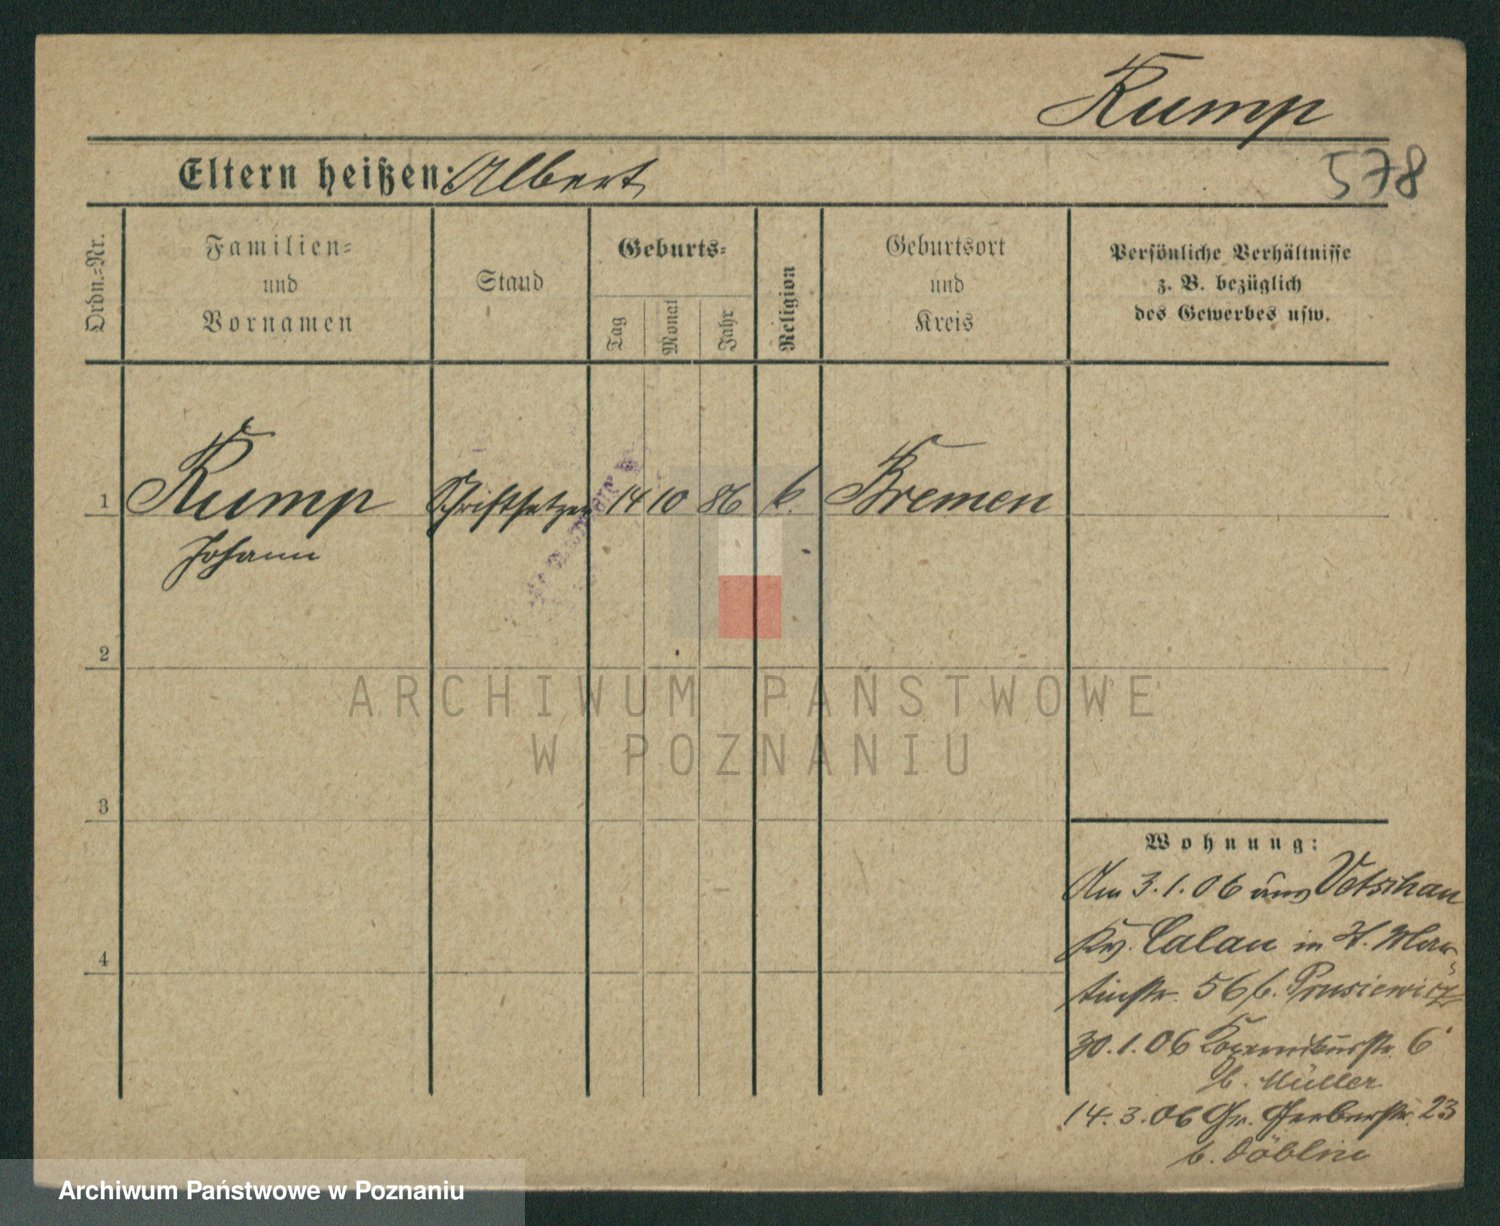 Rump
578
Eltern heißen: Albert
Ordn.-Nr.
Familien-
und
Vornamen
Stand
Geburts-
Tag
Monat
Jahr
Religion
Geburtsort
und
Kreis
Persönliche Verhältnisse
z. B. bezüglich
des Gewerbes usw.
1 Rump Schriftsetzer 14 10 86 k. Bremen
Johann
2
3
4
Wohnung:
Am 3.1.06 aus Vetschau
Kr. Calau in St. Mar-
tinstr. 56 b. Prusiewicz
30.1.06 6
b. Müller
14.3.06 Gr. Gerberstr. 23
b. Döblin
ARCHIWUM PAŃSTWOWE
W POZNANIU
Archiwum Państwowe w Poznaniu